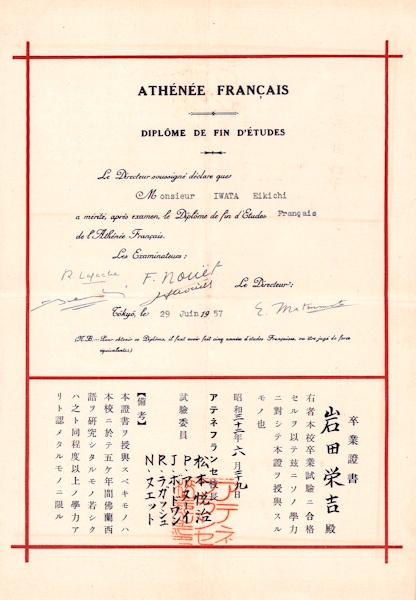 ATHÉNÉE FRANÇAIS
DIPLÔME DE FIN D'ÉTUDES
Le Directeur soussigné déclare que
Monsieur IWATA Eikichi
a mérité, après examen, le Diplôme de fin d'Etudes Français
de l'Athénée Français.
Les Examinateurs:
F. Nouët
Le Directeur:
Tôkyô, le 29 Juin 1957
(N.B.-- Pour obtenir ce Diplôme, il faut avoir fait cinq années d'études Françaises, ou être jugé de force
équivalente.)
卒業證書
岩田栄吉殿
右者本校卒業試驗ニ合格
セルヲ以テ玆ニソノ學力
ニ對シテ本證ヲ授與スル
モノ也
昭和三十二年六月二十九日
アテネフランセ校長
松本悦治
試驗委員
J・ボトワン
R・ラガッシュ
N・ヌエット
【備考】
本證書ヲ授與スベキモノハ
本校ニ於テ五ケ年間佛蘭西
語ヲ硏究シタルモノ若シク
ハ之ト同程度以上ノ學力ア
リト認メタルモノニ限ル